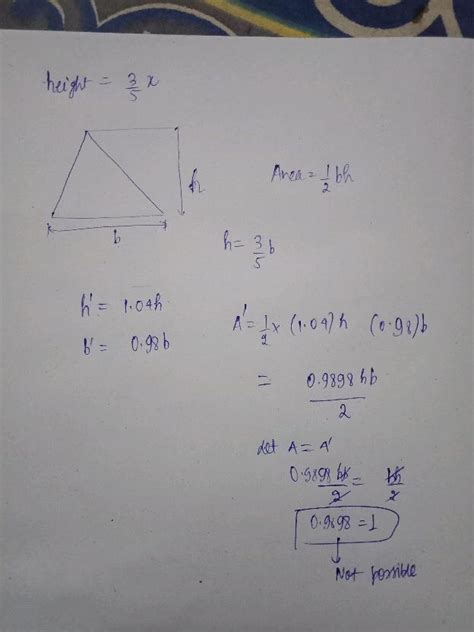 height = 3/5 x
h
Area = 1/2 bh
b
h = 3/5 b
h' = 1.04h
b' = 0.98b
A' = 1/2 x (1.04)h (0.98)b
= 0.9898 hb / 2
Let A = A'
0.9898 bh / 2 = bh / 2
0.9898 = 1
Not possible